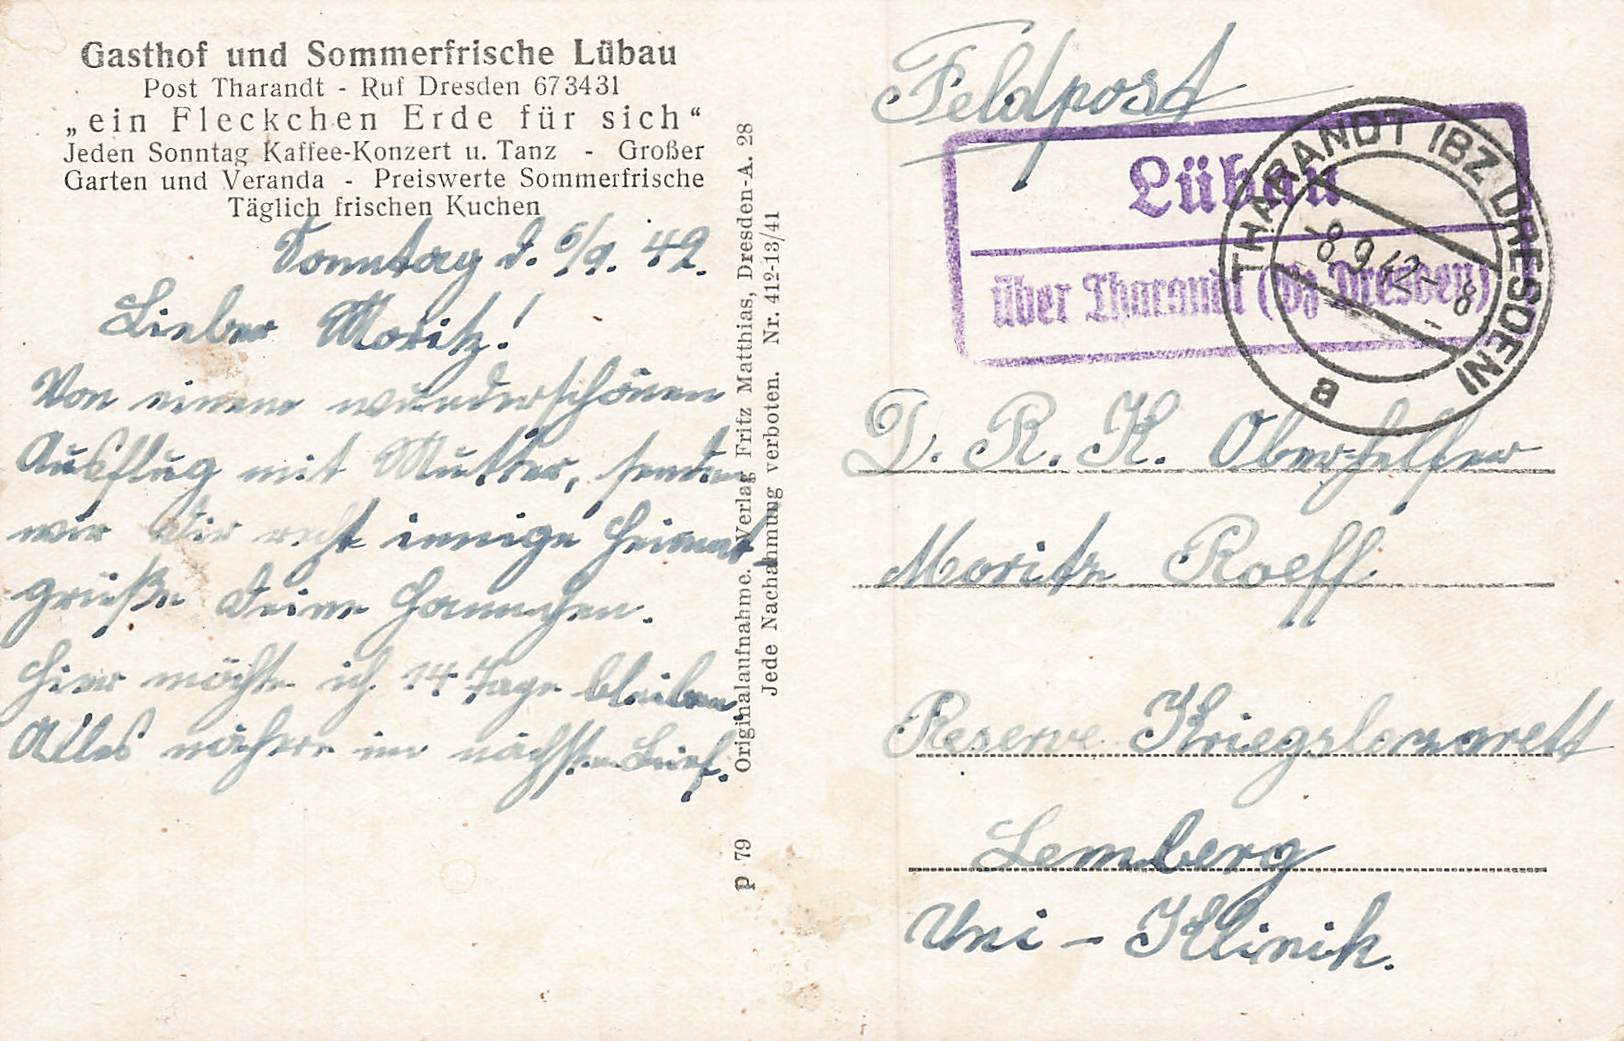 Gasthof und Sommerfrische Lübau
Post Tharandt - Ruf Dresden 673431
„ein Fleckchen Erde für sich“
Jeden Sonntag Kaffee-Konzert u. Tanz - Großer
Garten und Veranda - Preiswerte Sommerfrische
Täglich frischen Kuchen
Sonntag d. 6/9. 42.
Lieber Moritz!
Von einem wunderschönen
Ausflug mit Mutter, senden
wir Dir recht innige Heimat
grüße Deine Hannchen.
Hier möchte ich 14 Tage bleiben.
Alles nähere im nächsten Brief.
p 79 Originalaufnahme. Verlag Fritz Matthias, Dresden-A. 28
Jede Nachahmung verboten. Nr. 412-13/41
Feldpost
Lübau
über Tharandt (Bz Dresden)
THARANDT (BZ DRESDEN)
-8.9.42-8
B
D. R. K. Oberhelfer
Moritz Roeff.
Reserve Kriegslazarett
Lemberg
Uni - Klinik.